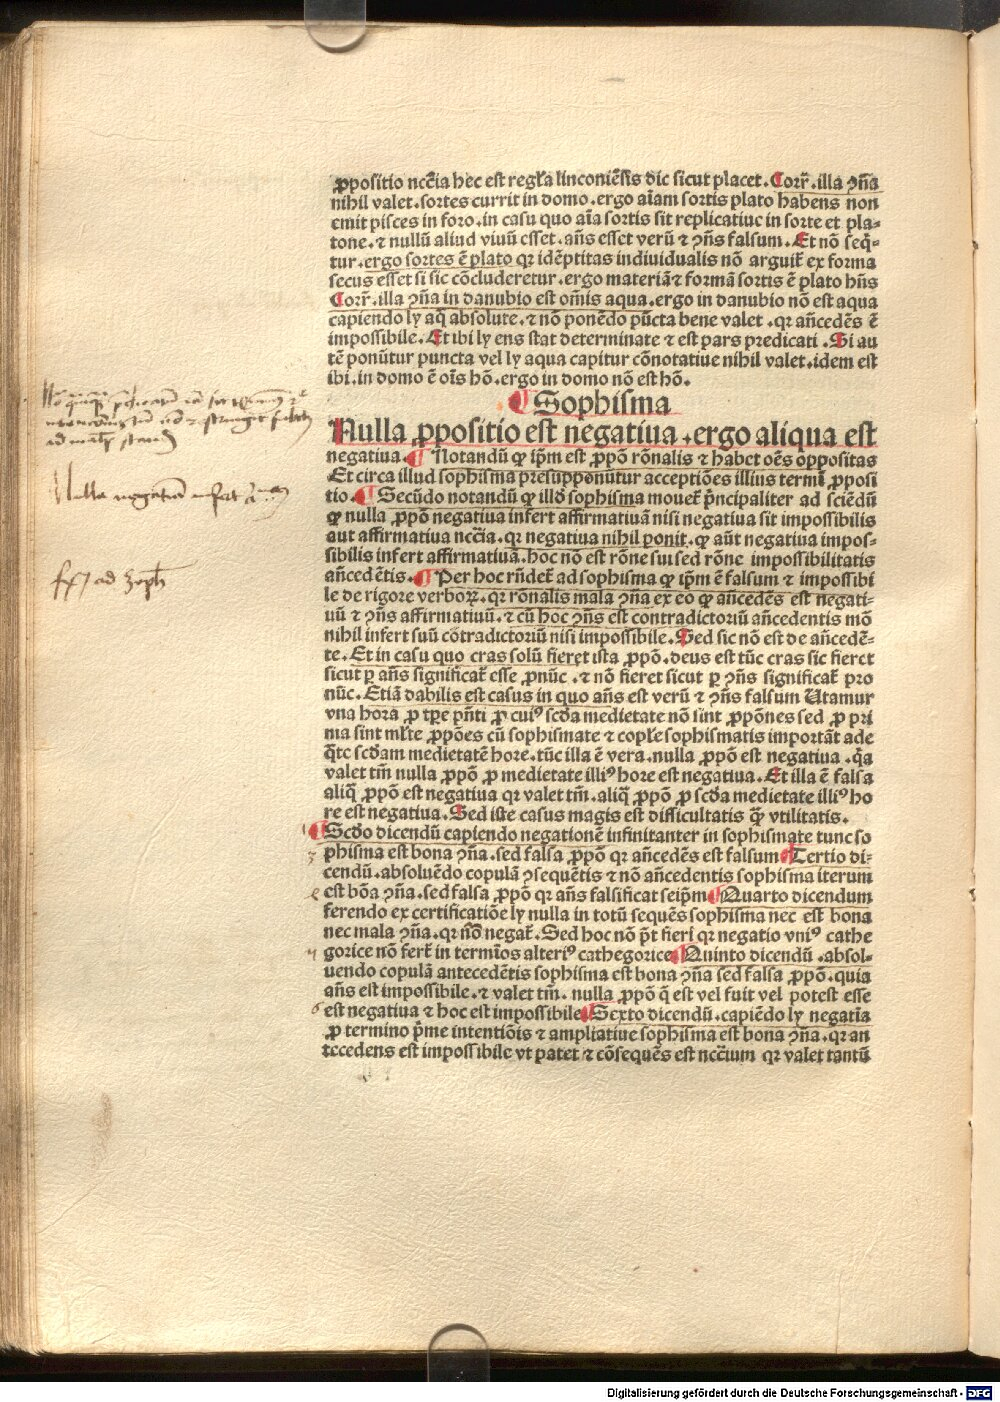 ꝓpositio nc̄cia hec est regl̵a linconiēsis dic sicut placet. Corr̄. illa ꝯñа
nihil valet. sortes currit in domo. ergo aīam sortis plato habens non
emit pisces in foro. in casu quo aīa sortis sit replicatiue in sorte et pla⸗
tone. ⁊ nullū aliud viuū esset. añs esset verū ⁊ ꝯñs falsum. Et nō seq̄⸗
tur. ergo sortes ē plato qꝛ idēptitas indiuidualis nō arguit̄ ex forma
secus esset si sic cōcluderetur. ergo materiā ⁊ formā sortis ē plato hñs
Corr̄. illa ꝯña in danubio est om̄is aqua. ergo in danubio nō est aqua
capiendo ly aq̄ absolute. ⁊ nō ponēdo pūcta bene valet. qꝛ añcedēs ē
impossibile. Et ibi ly ens stat determinate ⁊ est pars predicati. Si au
tē ponūtur puncta vel ly aqua capitur cōnotatiue nihil valet. idem est
ibi. in domo ē oīs hō. ergo in domo nō est hō.
Sophisma
Nulla ꝓpositio est negatiua. ergo aliqua est
negatiua. Notandū ꝙ ip̄m est ꝓpō rōnalis ⁊ habet oēs oppositas
Et circa illud sophisma presupponūtur acceptiōes illius termī ꝓposi
tio. Secūdo notandū ꝙ illd̄ sophisma mouet̄ p̄ncipaliter ad sciēdū
ꝙ nulla ꝓpō negatiua infert affirmatiuā nisi negatiua sit impossibilis
aut affirmatiua nc̄cia. qꝛ negatiua nihil ponit. ꝙ aūt negatiua impos⸗
sibilis infert affirmatiuā. hoc nō est rōne sui sed rōne impossibilitatis
añcedētis. Per hoc rñdet̄ ad sophisma ꝙ ip̄m ē falsum ⁊ impossibi
le de rigore verboꝝ. qꝛ rōnalis mala ꝯña ex eo ꝙ añcedēs est negati⸗
uū ⁊ ꝯñs affirmatiuū. ⁊ cū hoc ꝯñs est contradictoriū añcedentis mō
nihil infert suū cōtradictoriū nisi impossibile. Sed sic nō est de añcedē⸗
te. Et in casu quo cras solū fieret ista ꝓpō. deus est tūc cras sic fieret
sicut ꝑ añs significat̄ esse ꝓnūc. ⁊ nō fieret sicut ꝑ ꝯñs significat̄ pro
nūc. Etiā dabilis est casus in quo añs est verū ⁊ ꝯñs falsum Utamur
vna hora ꝓ tꝑe pñti ꝓ cuiꝰ scd̄a medietate nō sint ꝓpōnes sed ꝓ pri
ma sint ml̄te ꝓpōes cū sophismate ⁊ copl̄e sophismatis importāt ade
q̄te scd̄am medietatē hore. tūc illa ē vera. nulla ꝓpō est negatiua. q̄a
valet tm̄ nulla ꝓpō ꝓ medietate illiꝰ hore est negatiua. Et illa ē falsa
aliq̄ ꝓpō est negatiua qꝛ valet tm̄. aliq̄ ꝓpō ꝓ scd̄a medietate illiꝰ ho
re est negatiua. Sed iste casus magis est difficultatis q̄ꝫ vtilitatis.
Scd̄o dicendū capiendo negationē infinitanter in sophismate tunc so
phisma est bona ꝯña. sed falsa ꝓpō qꝛ añcedēs est falsum Tertio di⸗
cendū. absoluēdo copulā ꝯsequētis ⁊ nō añcedentis sophisma iterum
est bōa ꝯña. sed falsa ꝓpō qꝛ añs falsificat seip̄m Quarto dicendum
ferendo ex certificatiōe ly nulla in totū sequēs sophisma nec est bona
nec mala ꝯña. qꝛ nō negat̄. Sed hoc nō p̄t fieri qꝛ negatio vniꝰ cathe
gorice nō fert̄ in termīos alteriꝰ cathegorice Quinto dicendū. absol⸗
uendo copulā antecedētis sophisma est bona ꝯña sed falsa ꝓpō. quia
añs est impossibile. ⁊ valet tm̄. nulla ꝓpō q̄ est vel fuit vel potest esse
est negatiua ⁊ hoc est impossibile Sexto dicendū. capiēdo ly negatīa
ꝓ termino p̄me intentiōis ⁊ ampliatiue sophisma est bona ꝯña. qꝛ an
tecedens est impossibile vt patet ⁊ cōsequēs est nc̄cium qꝛ valet tantū
Digitalisierung gefördert durch die Deutsche Forschungsgemeinschaft - DFG